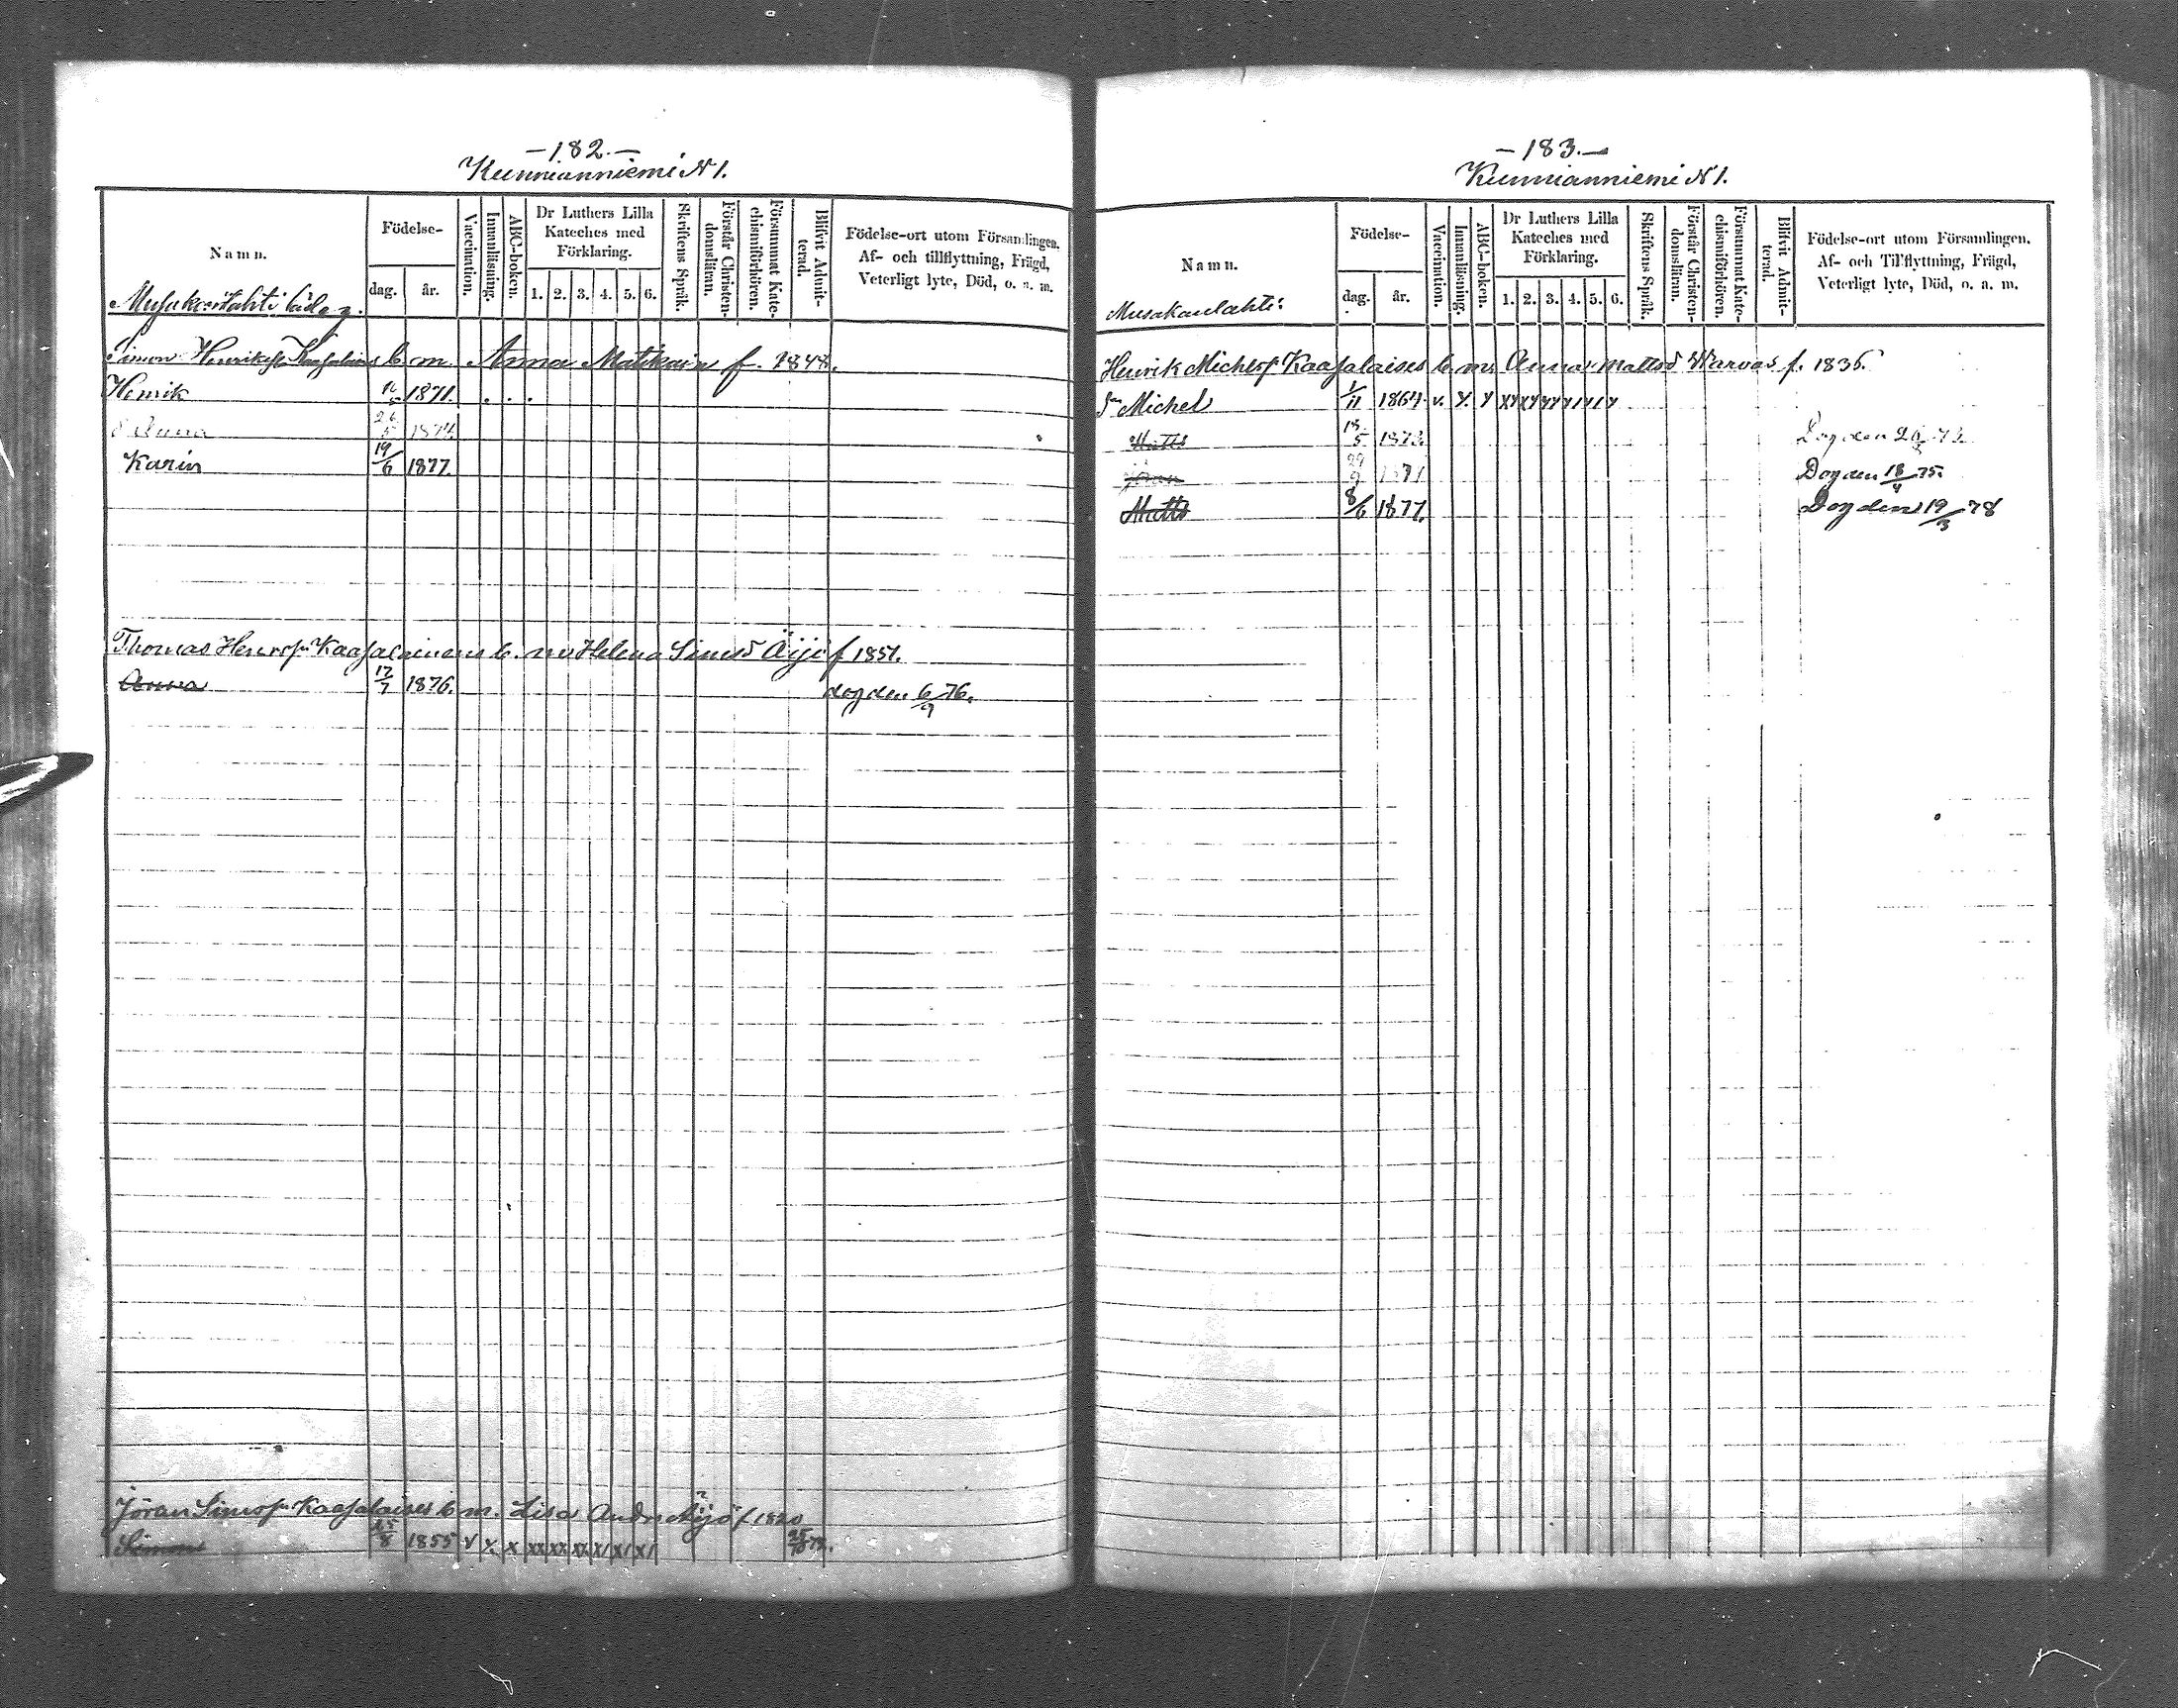 —182.—
Kunnianniemi N 1.
Namn.
Födelse-
dag.
år.
Vaccination.
Innanläsning.
ABC-boken.
Dr Luthers Lilla
Kateches med
Förklaring.
1. 2. 3. 4. 5. 6.
Skriftens Språk.
Förstår Christen-
domsläran.
Försummat Kate-
chismiförhören.
Blifvit Admit-
terad.
Födelse-ort utom Församlingen.
Af- och tillflyttning, Frägd,
Veterligt lyte, Död, o. a. m.
Simon Henriksson b. m. Anna Matikain f. 1848.
Henrik 1871. . . .
Anna 26/5 1874.
Karin 19/6 1877.
Thomas Kaasalainens b. m. Helena Simsd Äijö f 1851.
Anna 17/7 1876. dog den 6/9 76.
Jöran Kaasalaises b. m. Lisa Andrsd Äijö f 1820
Simon 1855 v x x xx xx xx x/ x/ x/
—183.—
Kunnianniemi N 1.
Namn.
Musakanlahti:
Födelse-
dag.
år.
Vaccination.
Innanläsning.
ABC-boken.
Dr Luthers Lilla
Kateches med
Förklaring.
1. 2. 3. 4. 5. 6.
Skriftens Språk.
Förstår Christen-
domsläran.
Försummat Kate-
chismiförhören.
Blifvit Admit-
terad.
Födelse-ort utom Församlingen.
Af- och Tillflyttning, Frägd,
Veterligt lyte, Död, o. a. m.
Henrik Michelss Kaasalaises b. m. Anna Mattsd Warvas f. 1836.
Sn Michel 1/11 1864 v.
Matts 18/5 1873. Dog den
Jöran 29/9 Dog den 18/4 75.
Matts 8/6 1877. Dog den 19/3 78